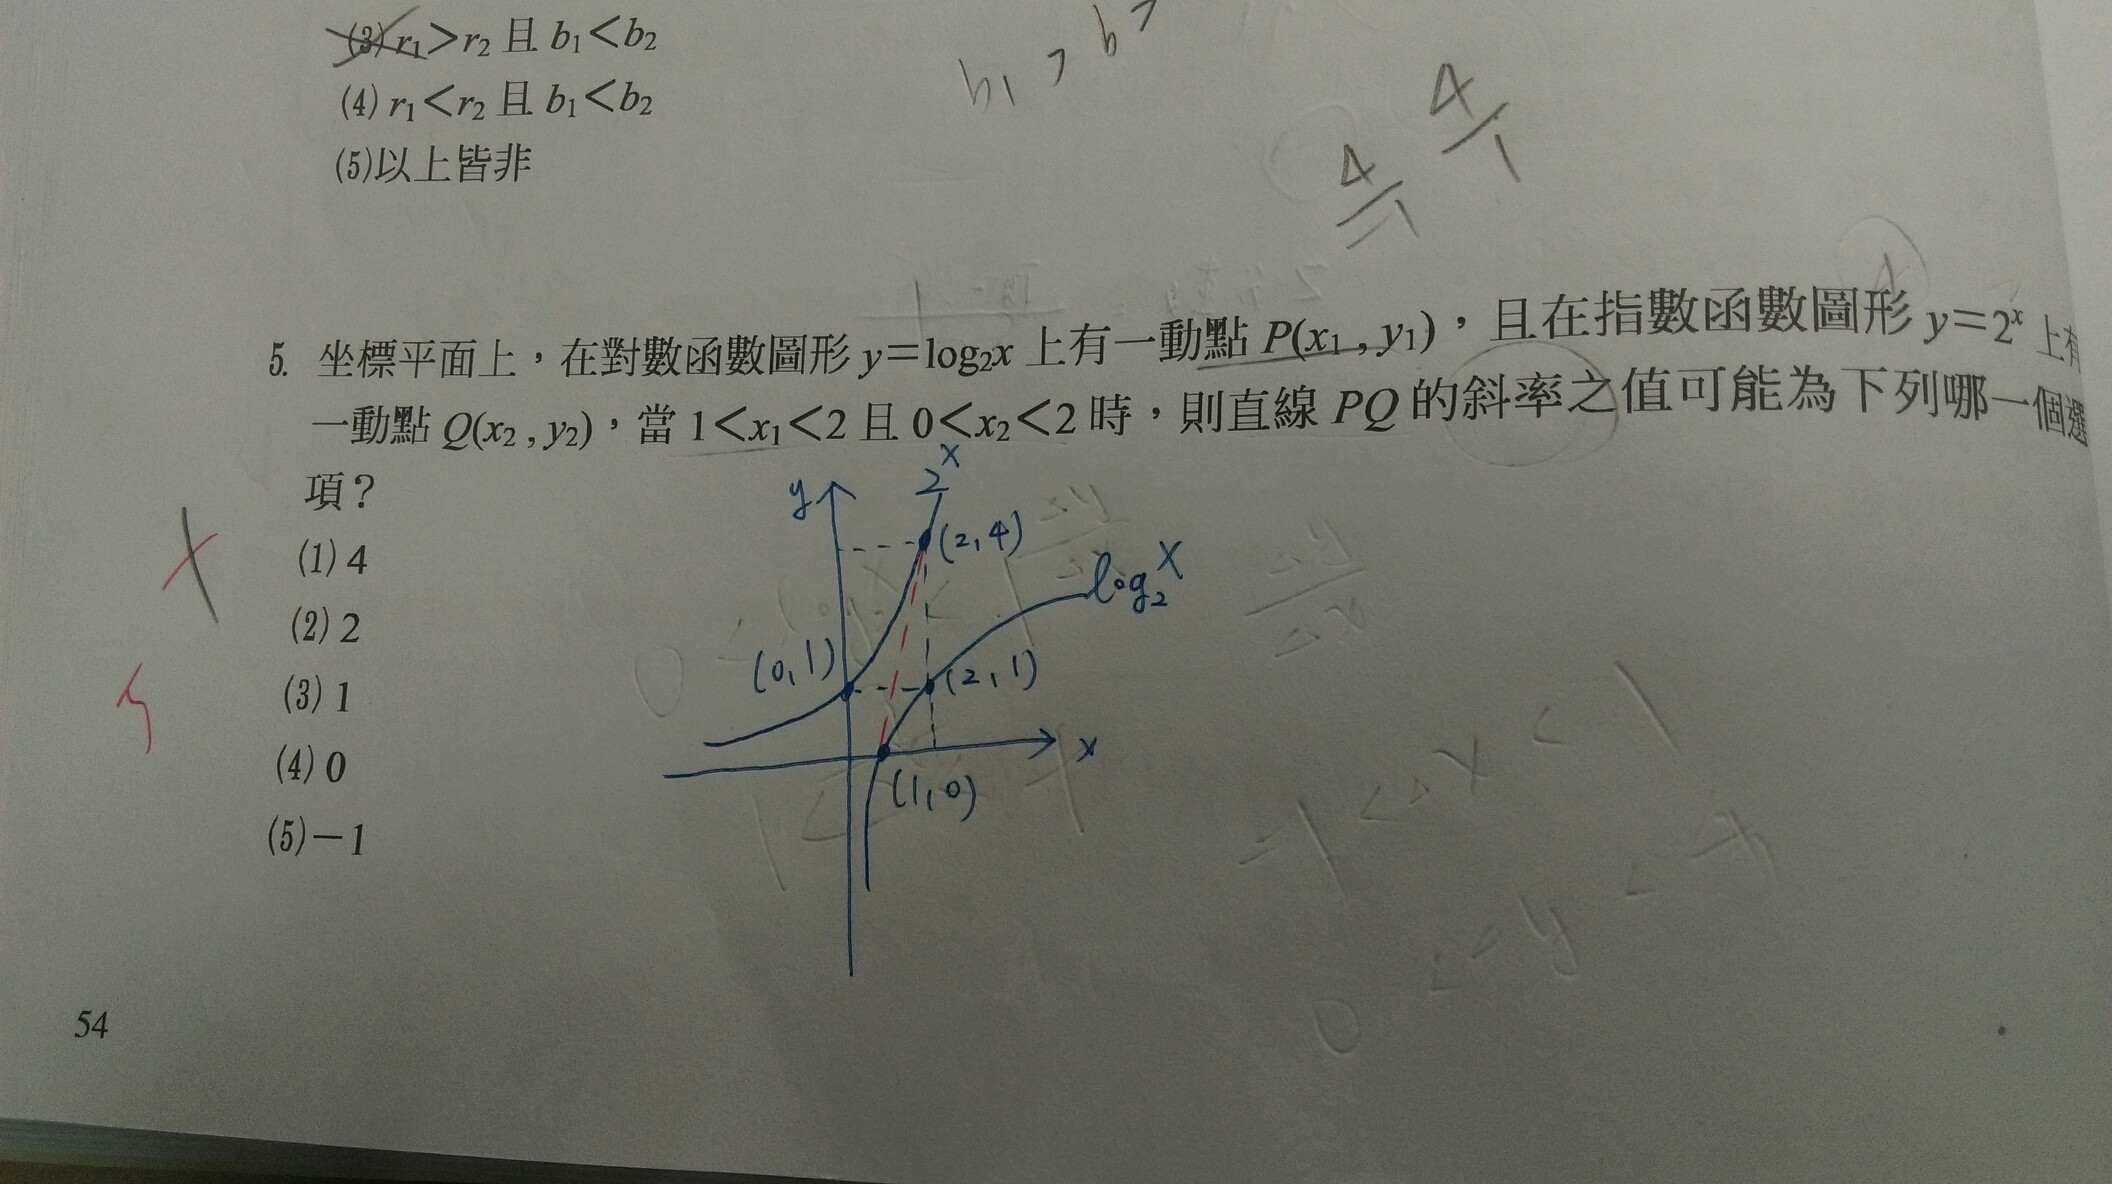 (3) r₁＞r₂ 且 b₁＜b₂
b₁ > b
(4) r₁＜r₂ 且 b₁＜b₂
4/1
(5)以上皆非
4/1
5. 坐標平面上，在對數函數圖形 y＝log₂x 上有一動點 P(x₁ , y₁)，且在指數函數圖形 y＝2ˣ 上有
一動點 Q(x₂ , y₂)，當 1＜x₁＜2 且 0＜x₂＜2 時，則直線 PQ 的斜率之值可能為下列哪一個選
項？
2ˣ
y
(2,4)
(1) 4
log₂x
(2) 2
(0,1)
(2,1)
(3) 1
x
(4) 0
(1,0)
(5)－1
54